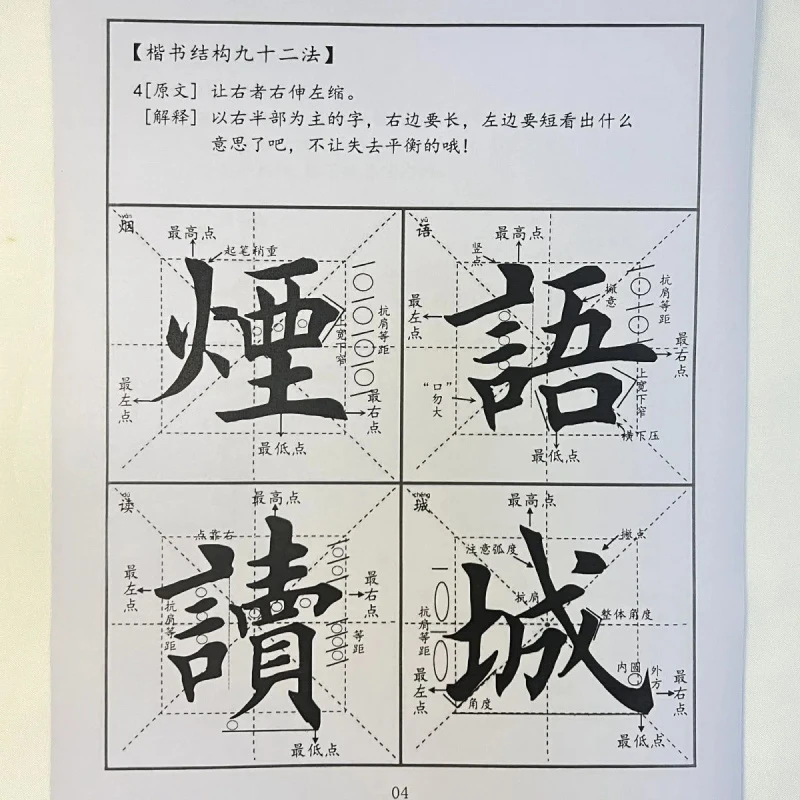 【楷书结构九十二法】
4[原文] 让右者右伸左缩。
[解释] 以右半部为主的字，右边要长，左边要短看出什么
意思了吧，不让失去平衡的哦！
yān
烟
最高点
起笔稍重
煙
上宽下窄
抗肩等距
最左点
最右点
最低点
yǔ
语
最高点
竖点
搬意
抗肩等距
語
最左点
最右点
上宽下窄
“口”勿大
横下压
最低点
dú
读
最高点
点靠右
讀
最左点
最右点
抗肩等距
等距
最低点
chéng
城
最高点
撇点
注意弧度
抗肩
整体角度
城
抗肩等距
内圆
外方
最左点
最右点
角度
最低点
04